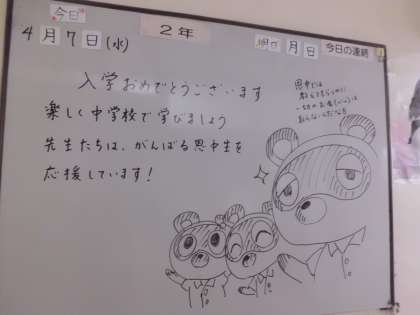 今日
4月7日(水)
2年
明日 月 日 今日の連絡
入学おめでとうございます
楽しく中学校で学びましょう
先生たちは、がんばる思中生を
応援しています!